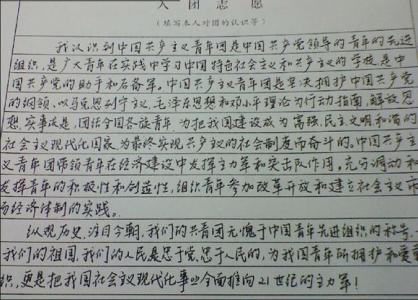 入团志愿
（填写本人对团的认识等）
我认识到中国共产主义青年团是中国共产党领导的青年的先进
组织，是广大青年在实践中学习中国特色社会主义和共产主义的学校，是中
国共产党的助手和后备军。中国共产主义青年团是坚决拥护中国共产党
的纲领，以马克思列宁主义、毛泽东思想和邓小平理论为行动指南，解放思
想，实事求是，团结全国各族青年，为把我国建设成为富强、民主文明和谐的
社会主义现代化国家，为最终实现共产主义的社会制度而奋斗的。中国共产主
义青年团带领青年在经济建设中发挥主力军和突击队作用，充分调动和
发挥青年的积极性和创造性，组织青年参加改革开放和建立社会主义市
场经济体制的实践。
纵观历史，注目今朝，我们的共青团无愧于中国青年先进组织的称号。
我们的祖国，我们的人民是忠于党，忠于人民的，为我国青年所拥护和爱戴
织，更是把我国社会主义现代化事业全面推向21世纪的主力军！